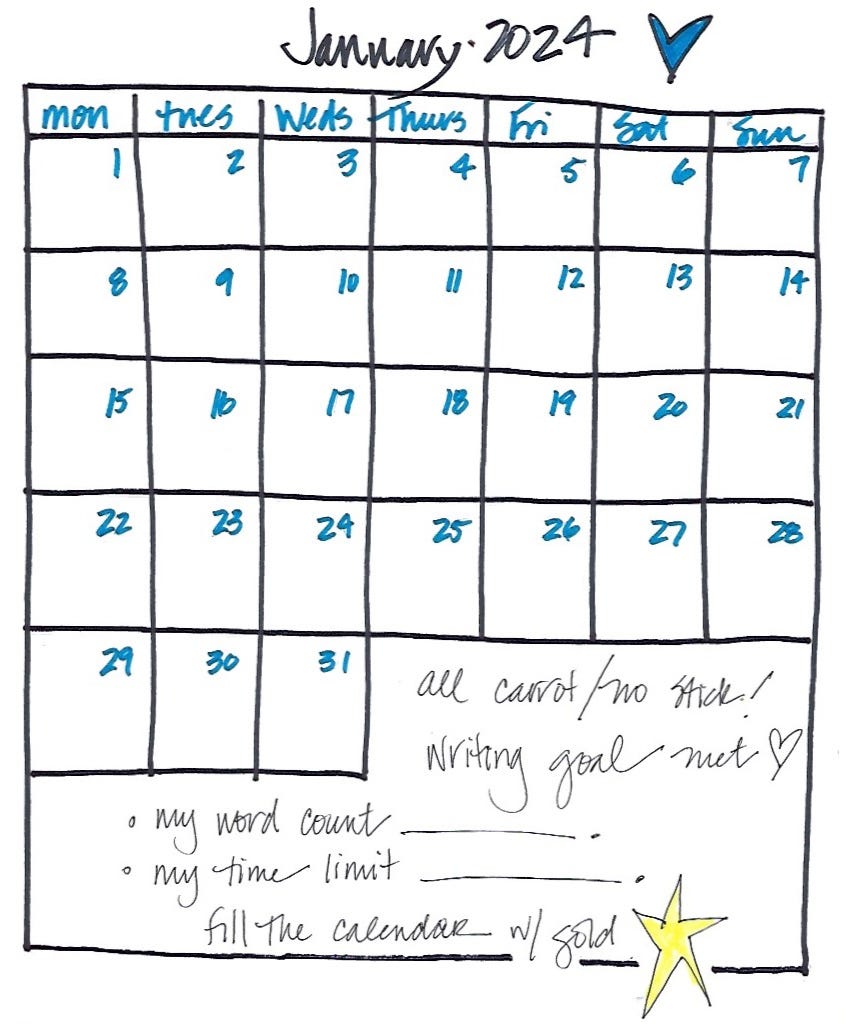 January 2024
mon tues Weds Thurs Fri Sat Sun
1 2 3 4 5 6 7
8 9 10 11 12 13 14
15 16 17 18 19 20 21
22 23 24 25 26 27 28
29 30 31
all carrot/no stick!
Writing goal met
• my word count ________.
• my time limit ________.
fill the calendar w/ gold